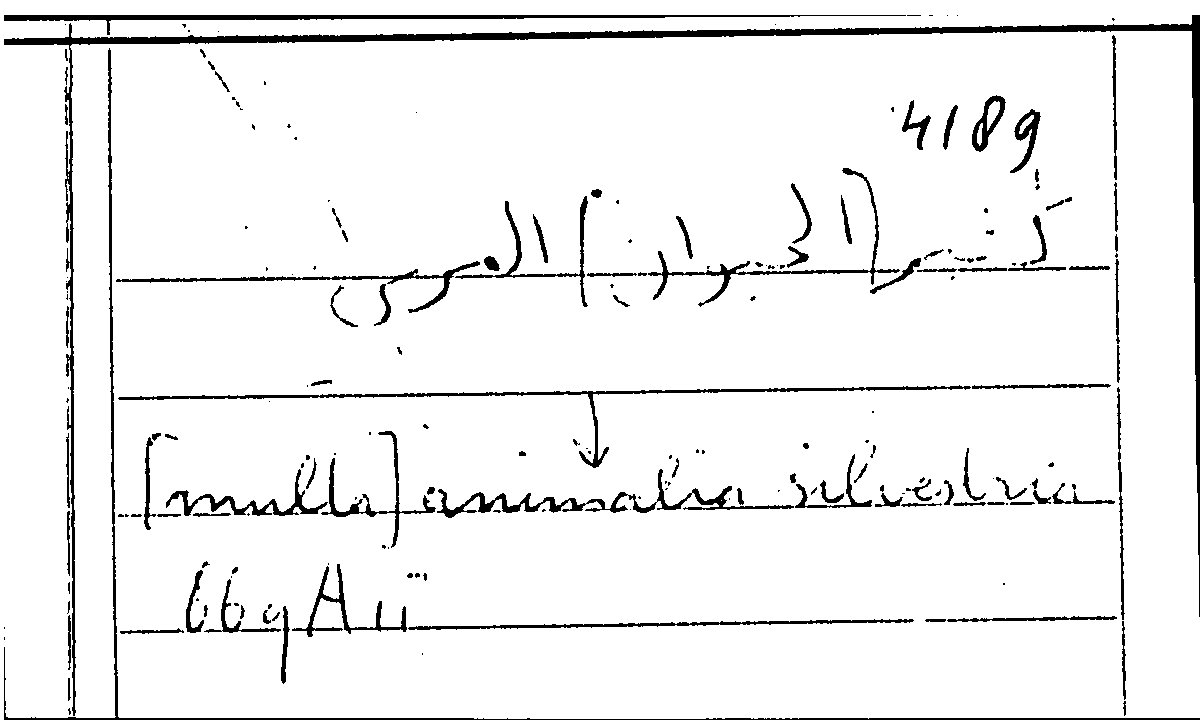 4189
كثير [الحيوان] البرى
[multa] animalia silvestria
669A ii